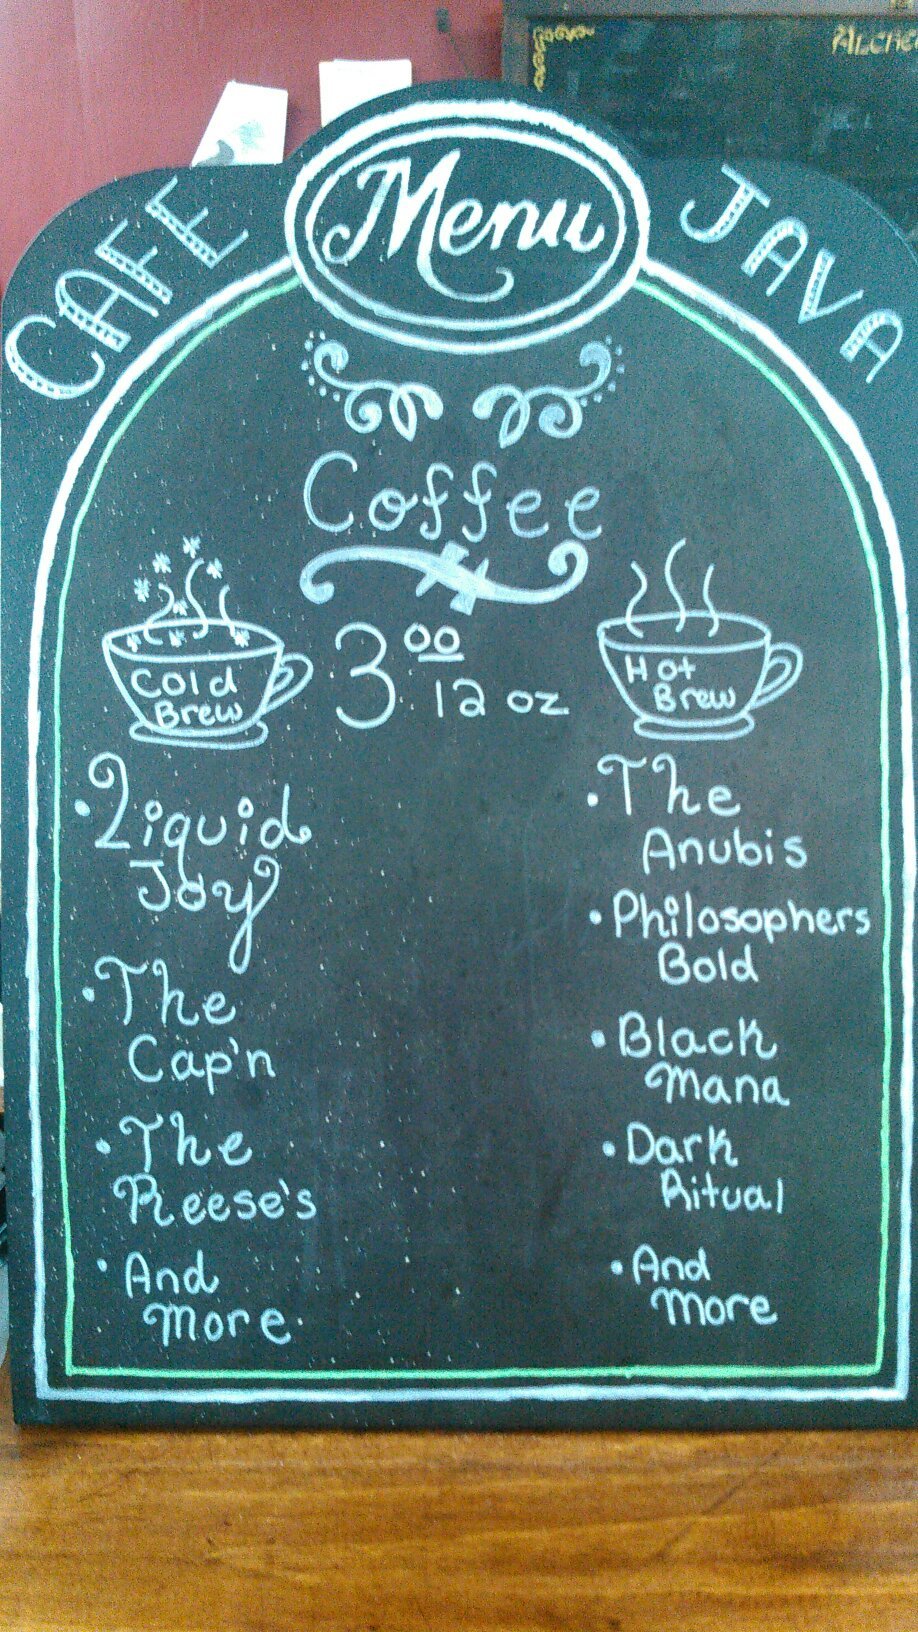 CAFE
Menu
JAVA
Coffee
Cold
Brew
3.00
12 oz
Hot
Brew
• Liquid
Joy
• The
Cap'n
• The
Reese's
• And
More.
• The
Anubis
• Philosophers
Bold
• Black
Mana
• Dark
Ritual
• And
More